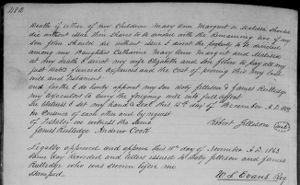 484
Death if either of my Children Mary Ann Margaret or Melissa should
die without issue their Share to be divided with the Remaining two if my
son John should die without issue I direct the property to be divided
among my Daughters Catharine Mary Ann Margaret and Melissa
at my death I direct my wife Elizabeth and Son John to pay all my
just debts funeral expenses and the cost of proving this my last
will and Testament
and lastly I do hereby appoint my son Joty Gilleson & James Rutledge
my Executors to carry the foregoing will into full effect
In witness I set my hand & seal this 15th day of December A.D.
In Presence of each other and by request
of Testator we witness the Same Robert Gilleson
James Rutledge Andrew Cook
Legally approved and approve this 18th day of November A.D. 1863
Same day Recorded and letters issued to Joty Gilleson and James
Rutledge who was sworn before me
Stamped W. S. Evans Reg